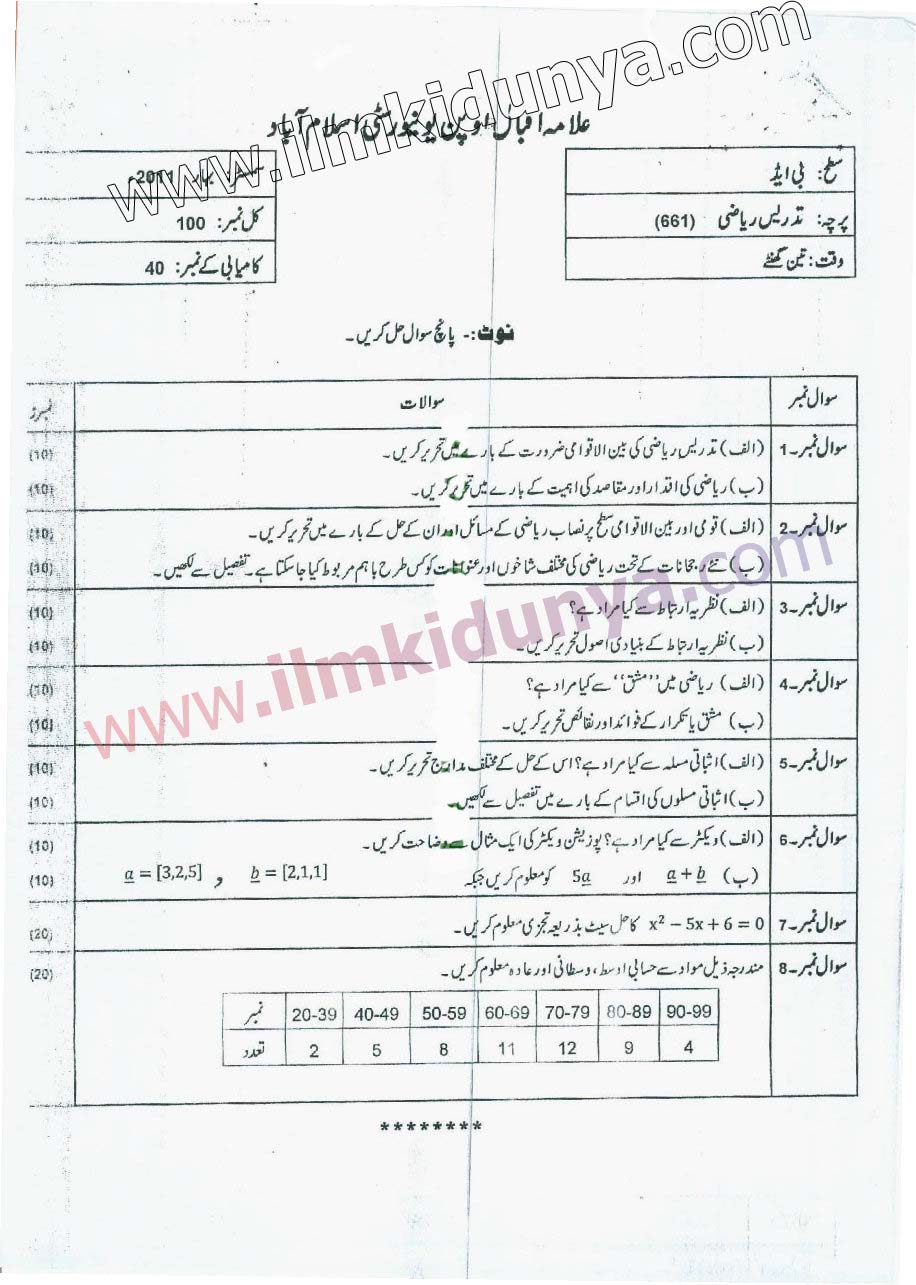 www.ilmkidunya.com
علامہ اقبال اوپن یونیورسٹی اسلام آباد
سطح: بی ایڈ
پرچہ: تدریس ریاضی (661)
وقت: تین گھنٹے
سمسٹر بہار 2011ء
کل نمبر: 100
کامیابی کے نمبر: 40
نوٹ:- پانچ سوال حل کریں۔
سوال نمبر سوالات نمبرز
سوال نمبر۔1 (الف) تدریس ریاضی کی بین الاقوامی ضرورت کے بارے میں تحریر کریں۔ (10)
(ب) ریاضی کی اقدار اور مقاصد کی اہمیت کے بارے میں تحریر کریں۔ (10)
سوال نمبر۔2 (الف) قومی اور بین الاقوامی سطح پر نصاب ریاضی کے مسائل اور ان کے حل کے بارے میں تحریر کریں۔ (10)
(ب) نئے رجحانات کے تحت ریاضی کی مختلف شاخوں اور عنوانات کو کس طرح باہم مربوط کیا جا سکتا ہے۔ تفصیل سے لکھیں۔ (10)
سوال نمبر۔3 (الف) نظریہ ارتباط سے کیا مراد ہے؟ (10)
(ب) نظریہ ارتباط کے بنیادی اصول تحریر کریں۔ (10)
سوال نمبر۔4 (الف) ریاضی میں ”مشق“ سے کیا مراد ہے؟ (10)
(ب) مشق یا تکرار کے فوائد اور نقائص تحریر کریں۔ (10)
سوال نمبر۔5 (الف) اثباتی مسلہ سے کیا مراد ہے؟ اس کے حل کے مختلف مدارج تحریر کریں۔ (10)
(ب) اثباتی مسلوں کی اقسام کے بارے میں تفصیل سے لکھیں۔ (10)
سوال نمبر۔6 (الف) ویکٹر سے کیا مراد ہے؟ پوزیشن ویکٹر کی ایک مثال سے وضاحت کریں۔ (10)
(ب) a + b اور 5a کو معلوم کریں جبکہ b = [2,1,1] , a = [3,2,5] (10)
سوال نمبر۔7 x² − 5x + 6 = 0 کا حل سیٹ بذریعہ تجزی معلوم کریں۔ (20)
سوال نمبر۔8 مندرجہ ذیل مواد سے حسابی اوسط، وسطانی اور عادہ معلوم کریں۔ (20)
نمبر 20-39 40-49 50-59 60-69 70-79 80-89 90-99
تعدد 2 5 8 11 12 9 4
********
www.ilmkidunya.com